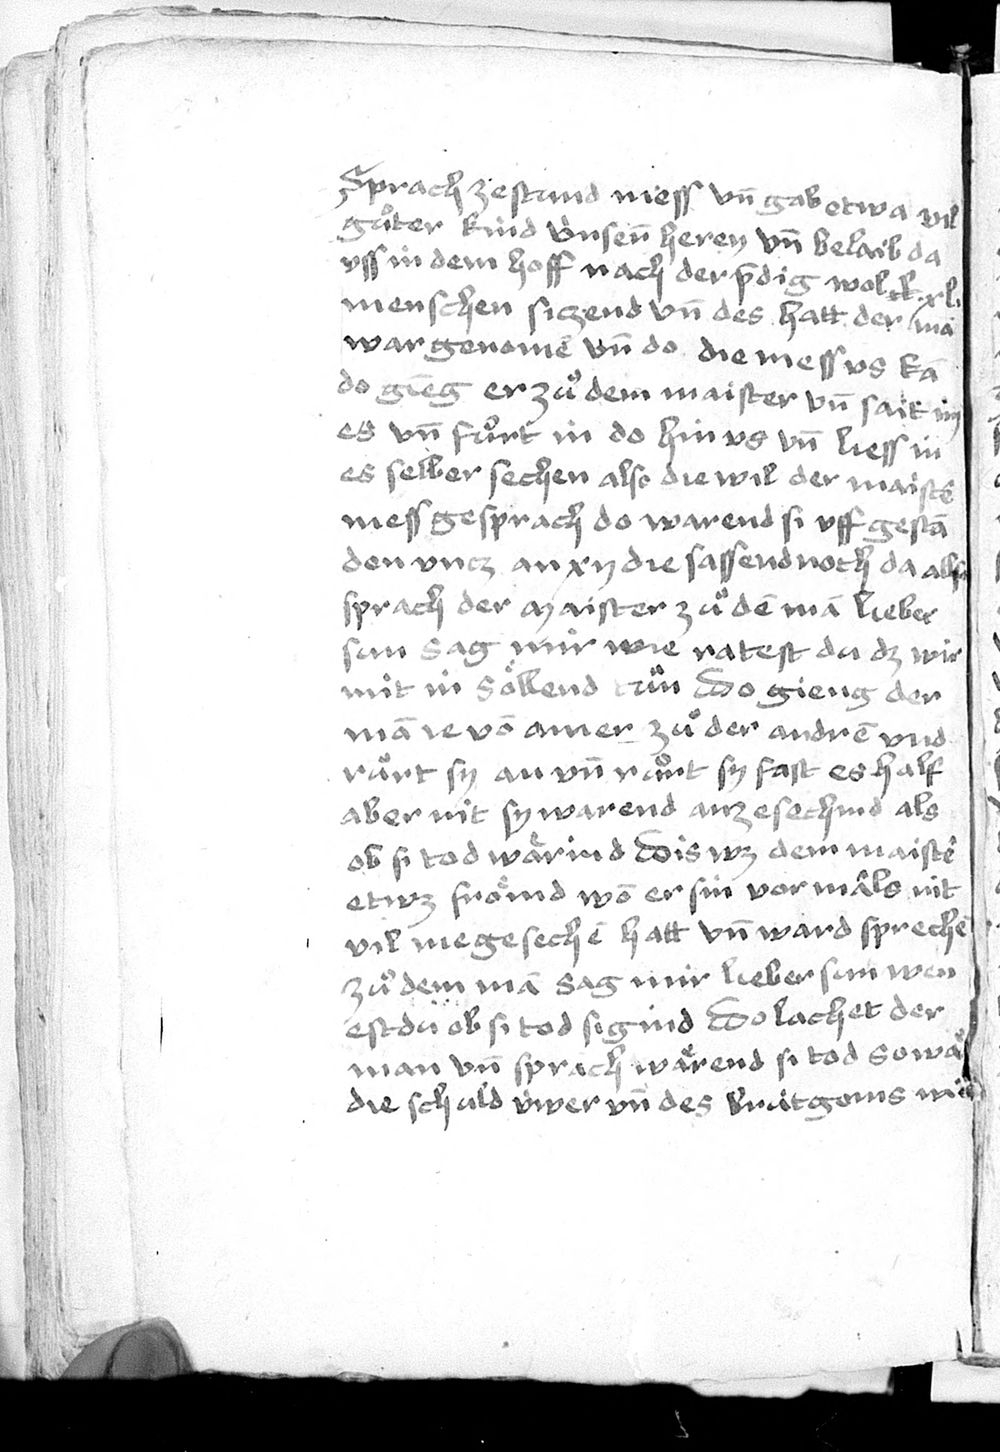 Sprach ze stund mess vn̄ gab etwa vil
gůter kind vnsen̄ heren vn̄ belaib da
vss in dem hoff nach der p̄dig wol xl.
menschen siczend vn̄ des hatt der mā
war genomē vn̄ do die mess vs kā
do gieng er zů dem maister vn̄ sait im
es vn̄ fůrt in do hin vs vn̄ liess in
es selber sechen also die wil der maistē
mess gesprach do warend si vff gestā
den vncz an xij die sassend noch da also
sprach der maister zů dē mā lieber
sun sag mir wie ratest du dz wir
mit in söllend tůn Do gieng der
mā ie vō ainer zů der andrē vnd
růrt sy an vn̄ růrt sy fast es half
aber nit sy warend anzesechind als
ob si tod wärind Dis wz dem maistē
etwz frömd wō er sin vormāls nit
vil me gesechē hatt vn̄ ward sprechē
zů dem mā sag mir lieber sun wen
est du ob si tod sigind Do lachet der
man vn̄ sprach wärend si tod so wär
die schuld vwer vn̄ des brütgoms